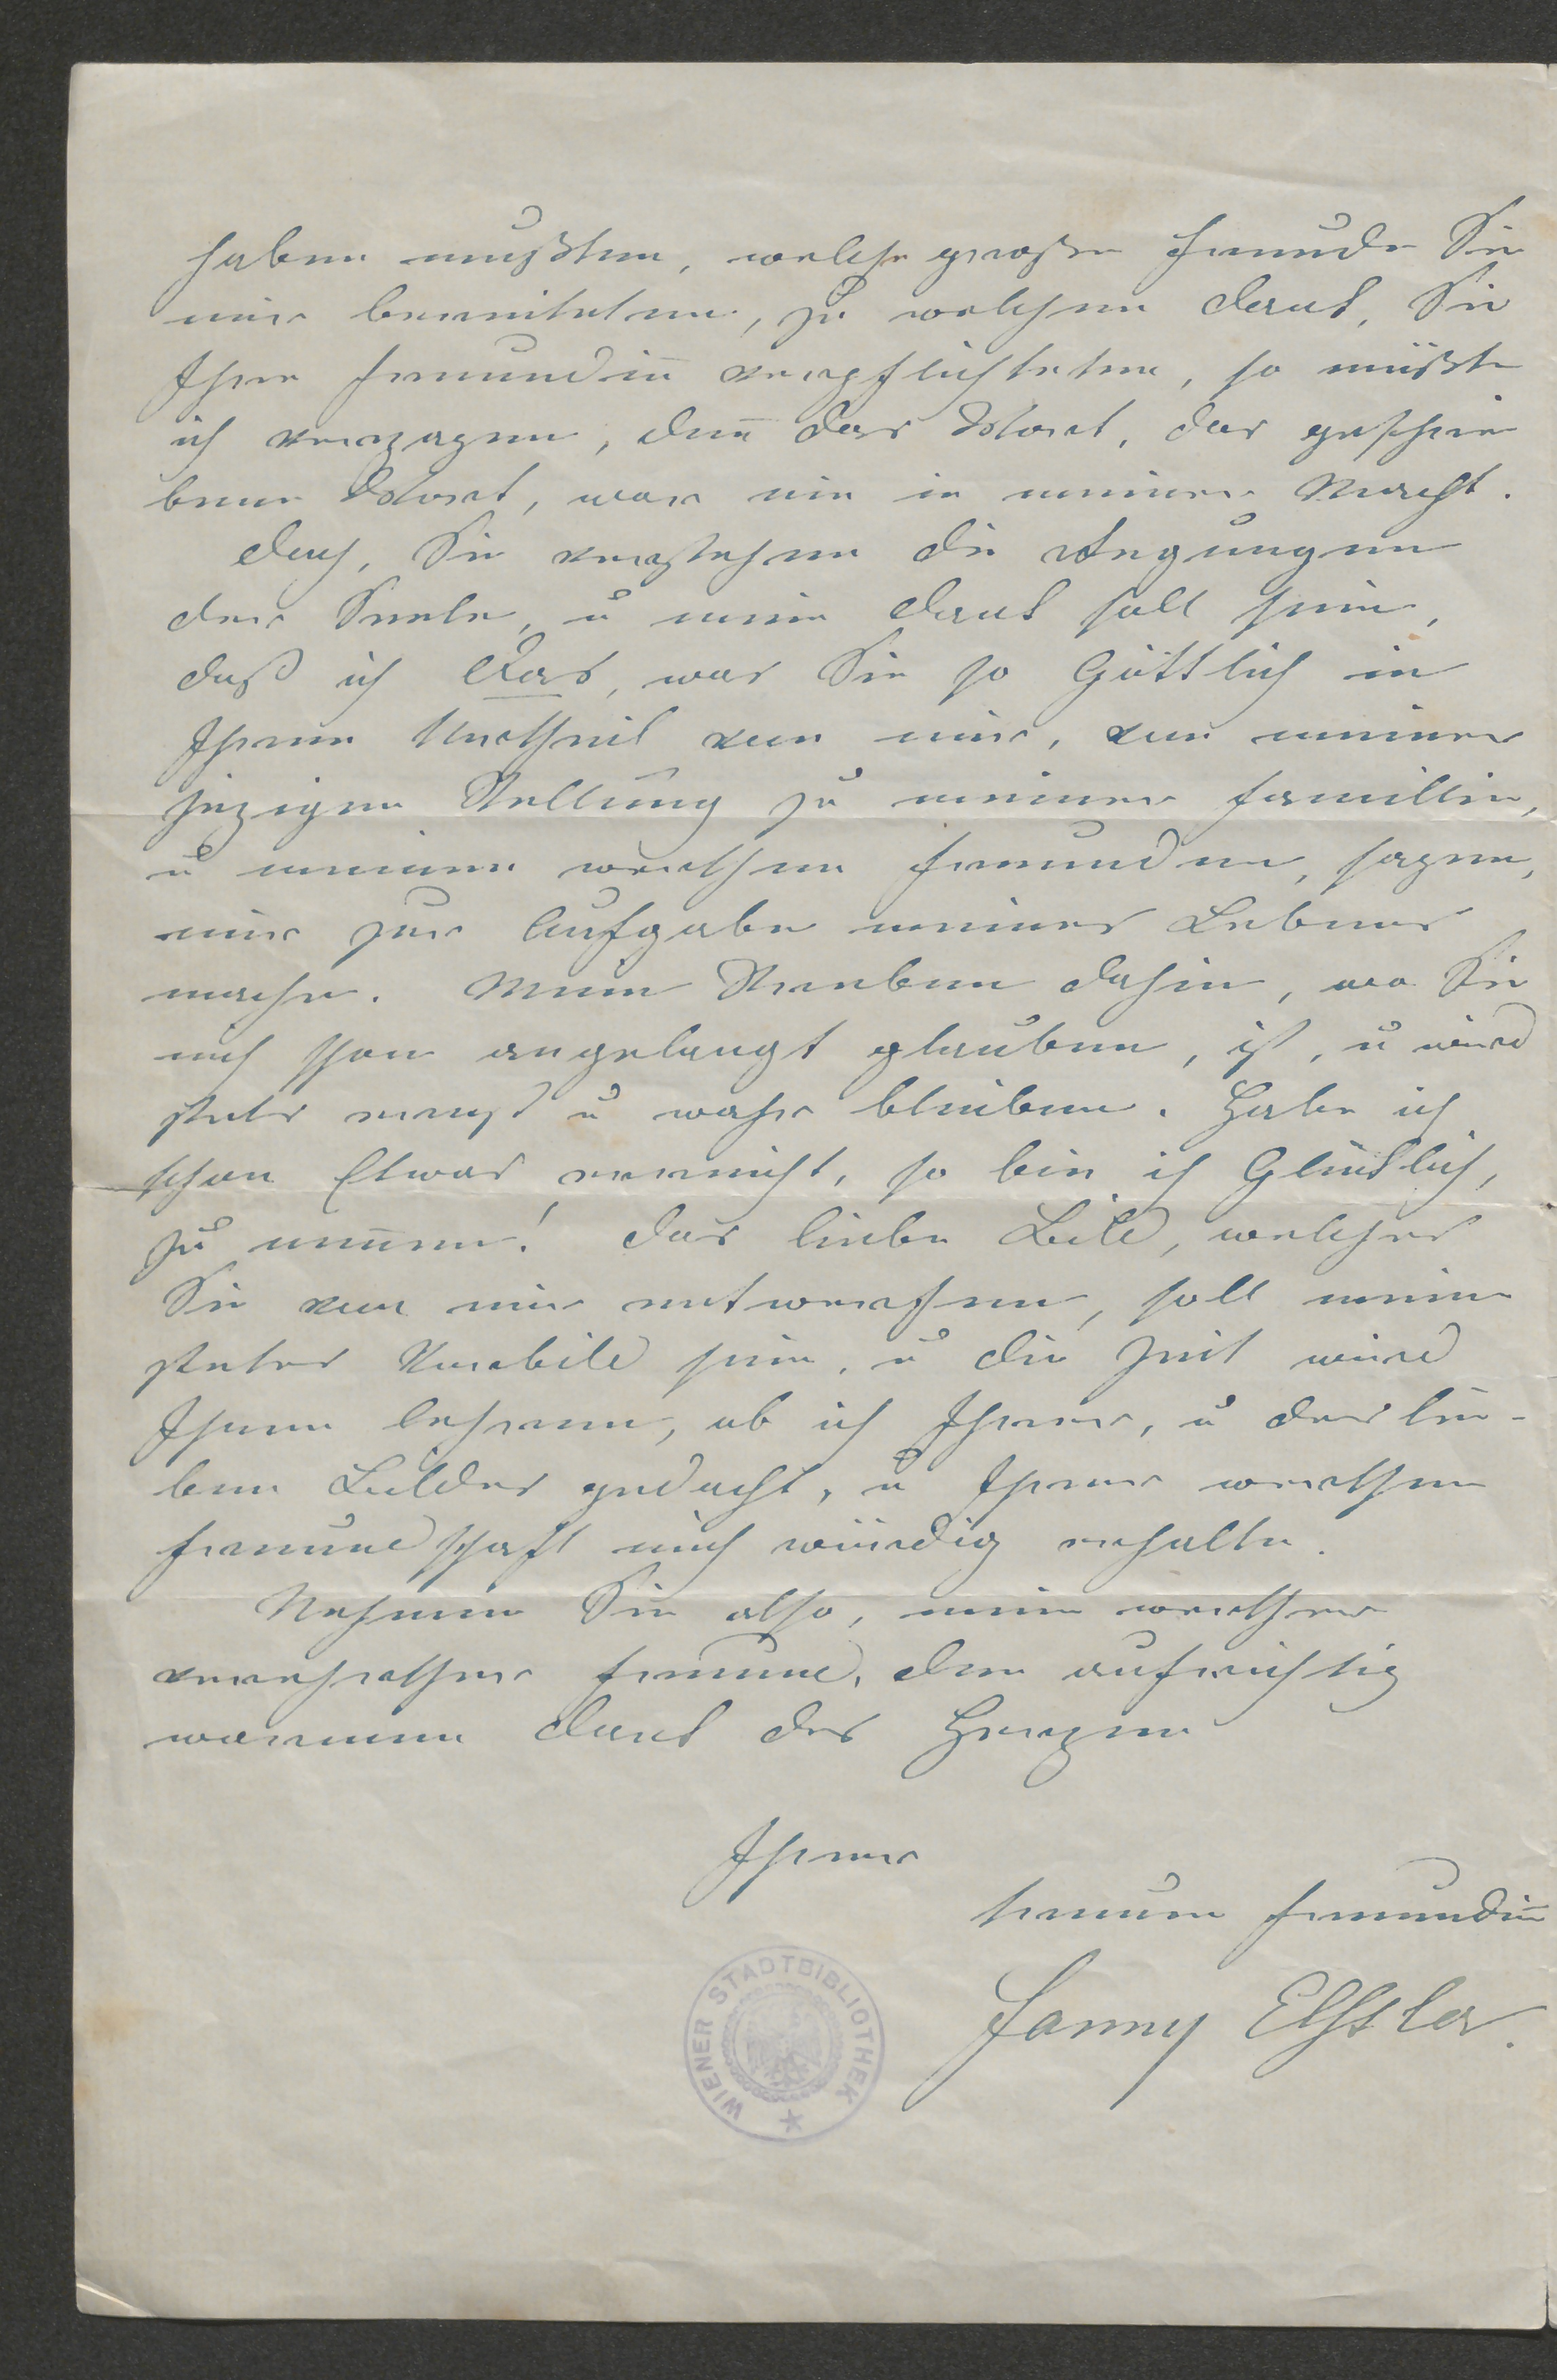 haben mußten, welche große Freude Sie
mir bereiteten, zu welchem Dank, Sie
Ihre Freundin̅ verpflichteten, so müßte
ich verzagen, den̅ das Wort, das geschrie
bene Wort, war nie in meiner Macht.
Doch, Sie verstehen die Regungen
der Seele, u mein Dank soll sein,
daß ich Das, was Sie so Göttlich in
Ihrem Urtheil von mir, von meiner
jezigen Stellung zu meiner Familie,
u meinen werthen Freunden, sagen,
mir zur Aufgabe meines Lebens
mache. Mein Streben dahin, wo Sie
mich schon angelangt glauben, ist, u wird
stets ernst u wahr bleiben. Habe ich
schon Etwas erreicht, so bin ich Glücklich,
zu nen̅en! Das liebe Bild, welches
Sie von mir entwerfen, soll mein
stetes Vorbild sein, u die Zeit wird
Ihnen lehren, ob ich Ihrer, u des lie-
ben Bildes gedacht, u Ihrer werthen
Freundschaft mich würdig erhalte.
Nehmen Sie also, mein werther
verehrther Freund, den aufrichtig
warmen Dank des Herzens
Ihrer
treuen Freundin̅
Fanny Elssler.
WIENER STADTBIBLIOTHEK